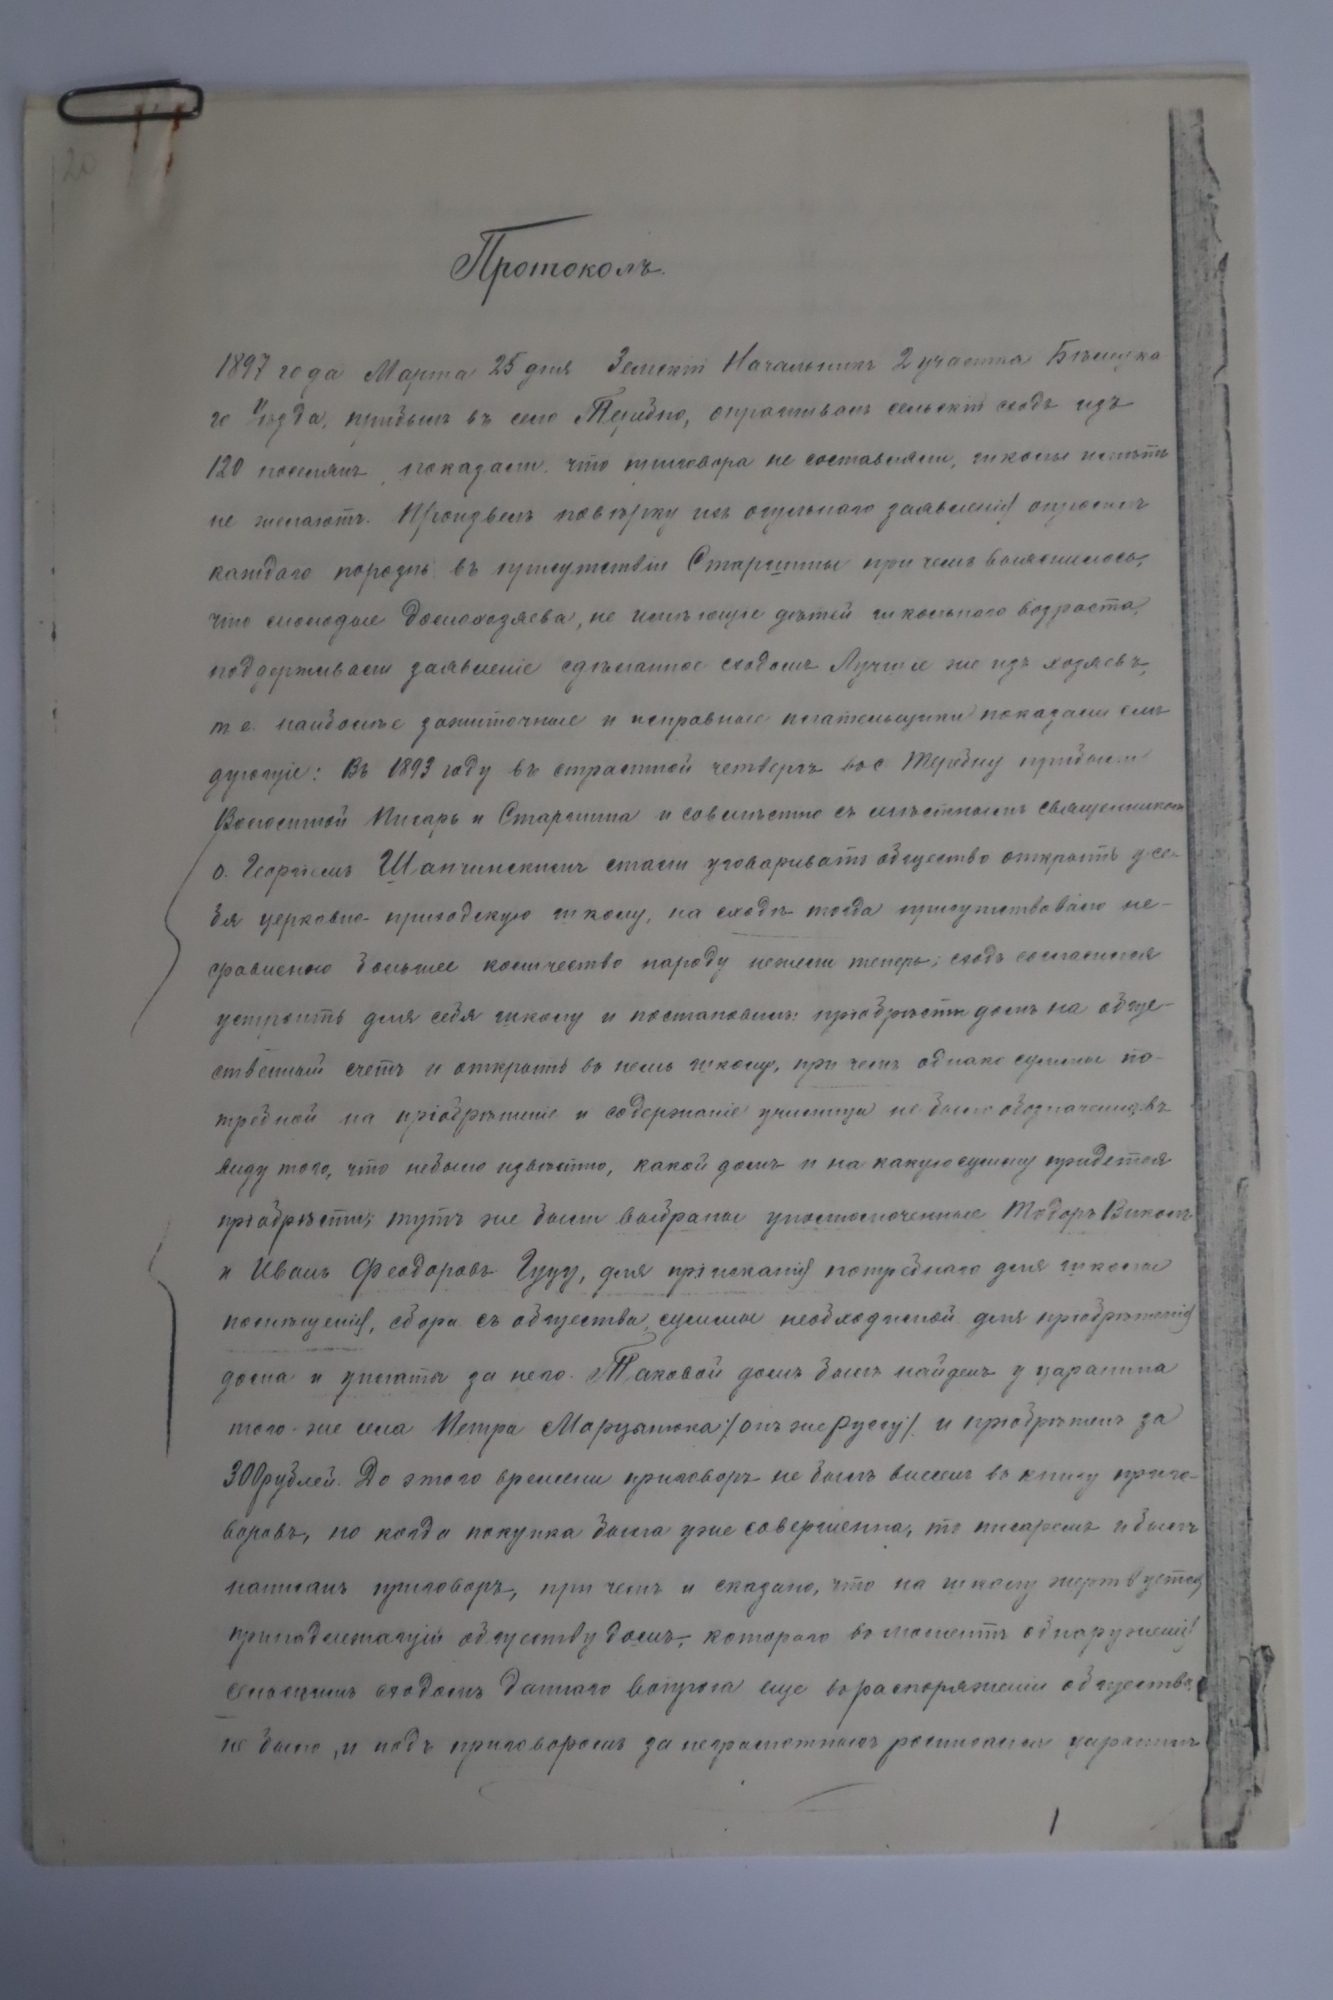 20
Протоколъ.
1897 года Марта 25 дня Земскій Начальникъ 2 участка Бѣлецка-
го Уѣзда, прибывъ въ село Теребно, опрашивалъ сельскій сходъ изъ
120 поселянъ, показали, что приговора не составляли, школы имѣть
не желаютъ. Произведъ повѣрку ихъ огульнаго заявленія опросилъ
каждаго порознь въ присутствіи Старшины при чемъ выяснилось,
что молодые домохозяева, не имѣющіе дѣтей школьнаго возраста,
поддерживали заявленіе сдѣланное сходомъ Лучшіе же изъ хозяевъ,
т е. наиболѣе зажиточные и исправные плательщики показали слѣ-
дующіе: Въ 1893 году въ страстной четвергъ въ с Теребну прибыли
Волостной Писарь и Старшина и совмѣстно съ мѣстнымъ священникомъ
о. Георгіемъ Шанчинскимъ стали уговаривать общество открыть у се-
бя церковно-приходскую школу, на сходѣ тогда присутствовало не-
сравненно большее количество народу нежели теперь; сходъ согласился
устроить для себя школу и постановилъ: пріобрѣсти домъ на обще-
ственный счетъ и открыть въ немъ школу, при чемъ однако суммы по-
требной на пріобрѣтеніе и содержаніе училища не было обозначено, въ
виду того, что небыло извѣстно, какой домъ и на какую сумму придется
пріобрѣсти; тутъ же были выбраны уполномоченные Тодоръ Виколъ
и Иванъ Феодоровъ Гуцу, для пріисканія потребнаго для школы
помѣщенія, сбора съ общества суммы необходимой для пріобрѣтенія
дома и уплаты за него. Таковой домъ былъ найденъ у царанина
того-же села Петра Марцынюка /онъ же Руссу/ и пріобрѣтенъ за
300 рублей. До этого времени приговоръ не былъ внесенъ въ книгу приго-
воровъ, но когда покупка была уже совершенна, то писаремъ и былъ
написанъ приговоръ, при чемъ и сказано, что на школу жертвуется
принадлежащій обществу домъ, котораго въ моментъ обнаруженія
сельскимъ сходомъ даннаго вопроса еще въ распоряженіи общества
не было, и подъ приговоромъ за неграмотныхъ росписался царанинъ
1